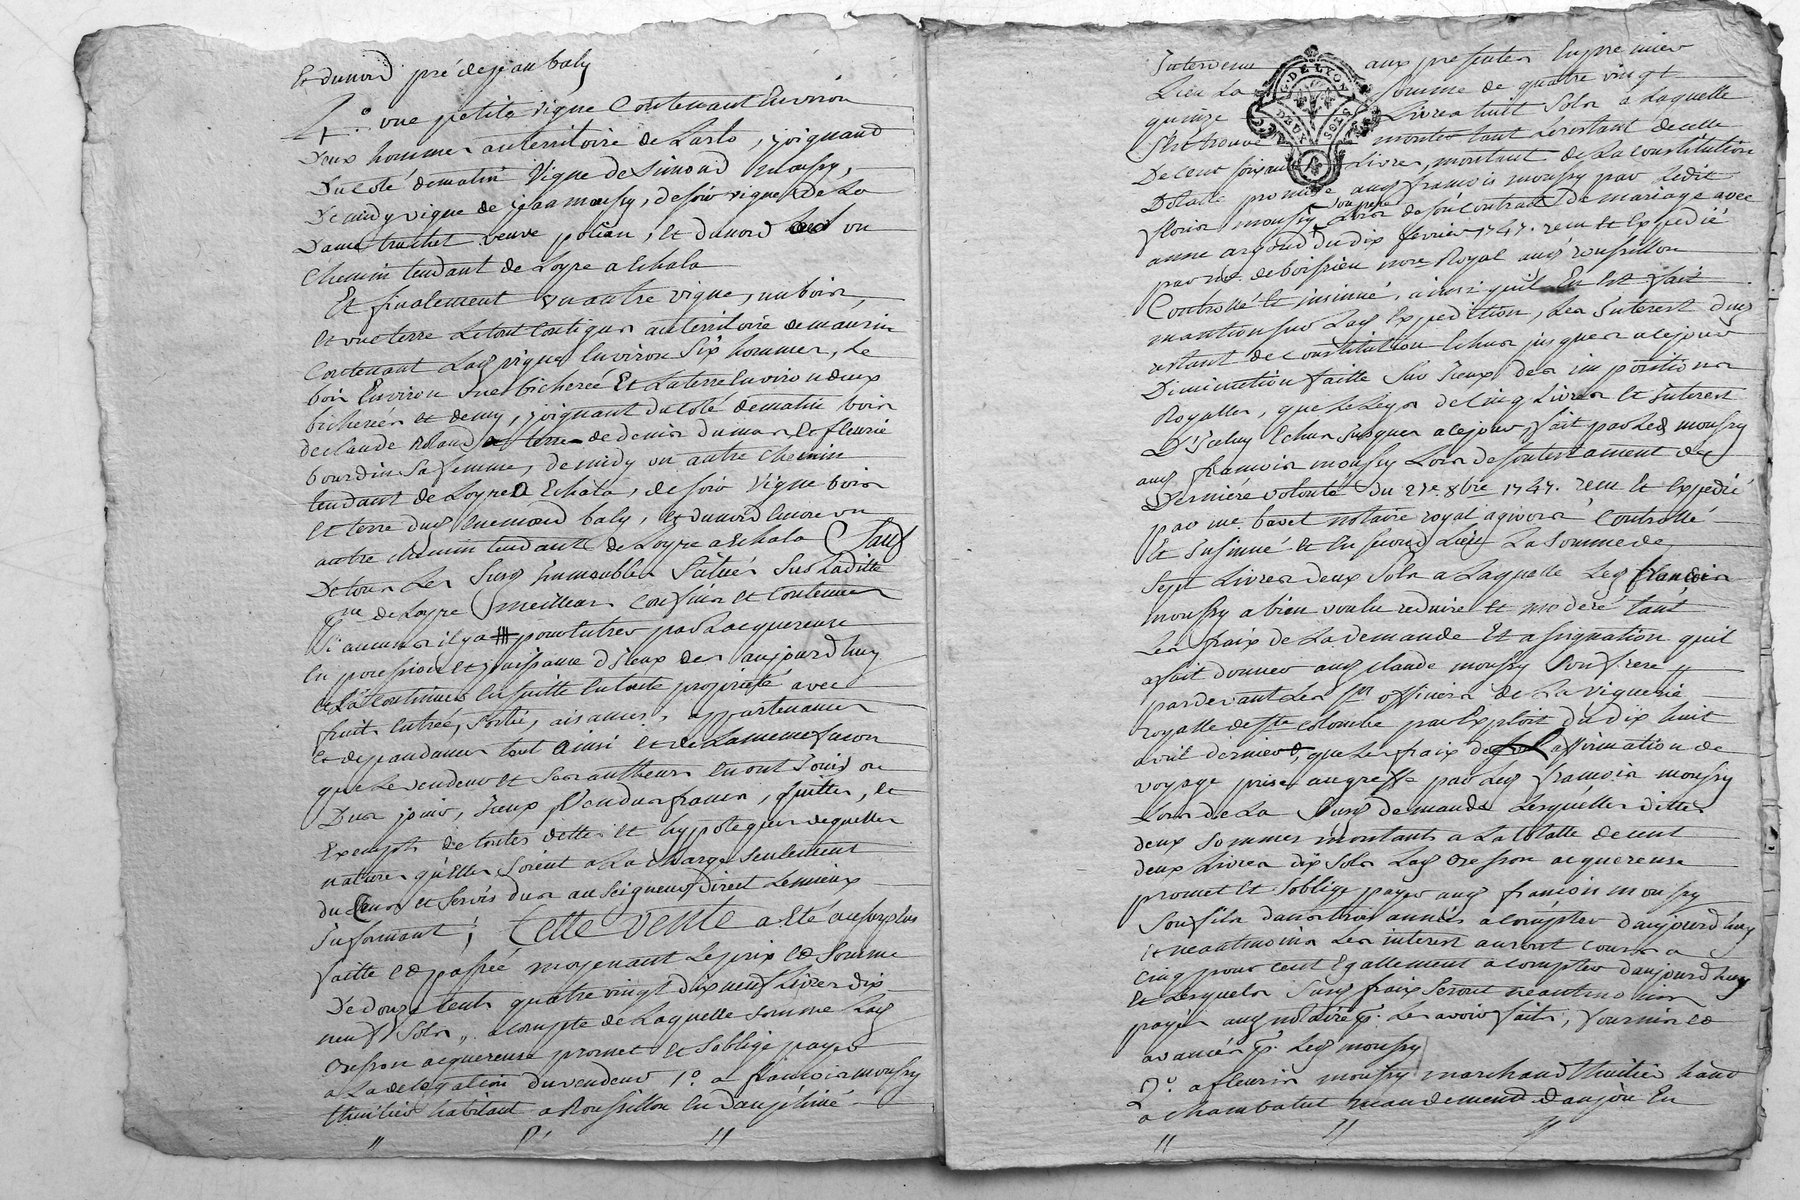 Et du nord pré de jean baly
4.° une petite vigne Contenant Environ
Deux hommes au territoire de Larto, joignand
Du coté de matin Vigne de Simond moussy,
De midy vigne de jean moussy, de soir vigne de La
Dame truchet veuve , et du nord un
Chemin tendant de Loyre a Echala
Et finalement un autre vigne, un bois,
Et une terre Le tout Contigus au territoire de
Contenant Lad vigne Environ Six hommes, Le
bois Environ Une bicherée Et La terre Environ deux
bicherées et demy, joignant du coté de matin bois
de Claude terre de denis dumas et fleurie
bourdin Sa femme, de midy un autre Chemin
tendant de Loyre a Echala, de soir Vigne bois
Et terre dud baly, et du nord Encore un
autre chemin tendant de Loyre a Echala Sauf
De tous Les Susd immeubles Situés Sus La ditte
de Loyre meilleurs Confins et Contenues
Si aucuns il y a pour Entrer par L'acquereuse
En possession et jouissance d'iceux des aujourd'huy
Et La Continuer En suitte En toute proprieté avec
fruits Entrées, Sorties, aisances, appartenances
Et dependances tout Ainsi et de La meme facon
que Le vendeur et Ses autheurs En ont joui ou
Du jouir, iceux Vendus francs, quittes, et
Exempts de toutes dettes et hypoteques de quelles
natures qu'elles Soient a La charge Seulement
du Cens et Servis dus au Seigneur direct Le mieux
informant; Cette vente a Eté au surplus
faitte Et passée moyenant Le prix Et Somme
De douze cents quatre vingt dix neuf Livres dix
neuf Sols, a compte de Laquelle Somme Lad
acquereuse promet et S'oblige payer
a La delegation du vendeur 1.° a francois moussy
thuilier habitant a Roussillon En dauphiné
Intervenu aux presentes En premier
Lieu La Somme de quatre vingt
quinze Livres huit Sols a Laquelle
S'est trouvé monter tant Le restant de celle
De cent soixante Livres, montant de La constitution
Dotalle promise aud francois moussy par Ledit
moussy son pere Lors de son contrat De mariage avec
anne argoud du dix fevrier 1747. recu et Expedié
par me. de boissieu nore Royal aud roussillon
Controllé et insinué, ainsi qu'il En Est fait
mantion sur Lad Expedition, Les Interest dud
restant de constitution Echus jusques a ce jour
Diminution faitte Sur iceux des impositions
Royalles, que Le Legs de Cinq Livres Et interest
D'iceluy Echus jusques a ce jour, fait par Led moussy
aud francois moussy Lors de son testament de
Derniere volonté du 27e. 8bre 1747. recu Et Expedié
par me. bavet notaire royal a givors Controllé
Et Insinué Et En second Lieu La Somme de
Sept Livres deux Sols a Laquelle Led francois
moussy a bien voulu reduire Et moderé tant
Les fraix de La demande Et assignation qu'il
a fait donner aud Claude moussy Son frere
par devant Les srs officiers de La viguerie
royalle de ste colombe par Exploit du dix huit
avril dernier, que Les fraix de affirmation de
voyage prise au greffe par Led francois moussy
Lors de La Susd demande Lesquelles dittes
deux Sommes montants a La totalle de cent
deux Livres dix Sols Lad acquereuse
promet Et S'oblige payer aud francois moussy
Son fils dans trois années a compter d'aujourd'huy
Et neantmoins Les interest auront cours a
cinq pour cent Egallement a compter d'aujourd'huy
Et Lesquels Susd fraix Seront neantmoins
payés aud notaire pr. Les avoir faits, fournis et
avancés pr. Led moussy
2.° a fleuris moussy marchand thuilier habt
a chambalud mandement d'anjou En
G. DE LYON
DEUX SOLS